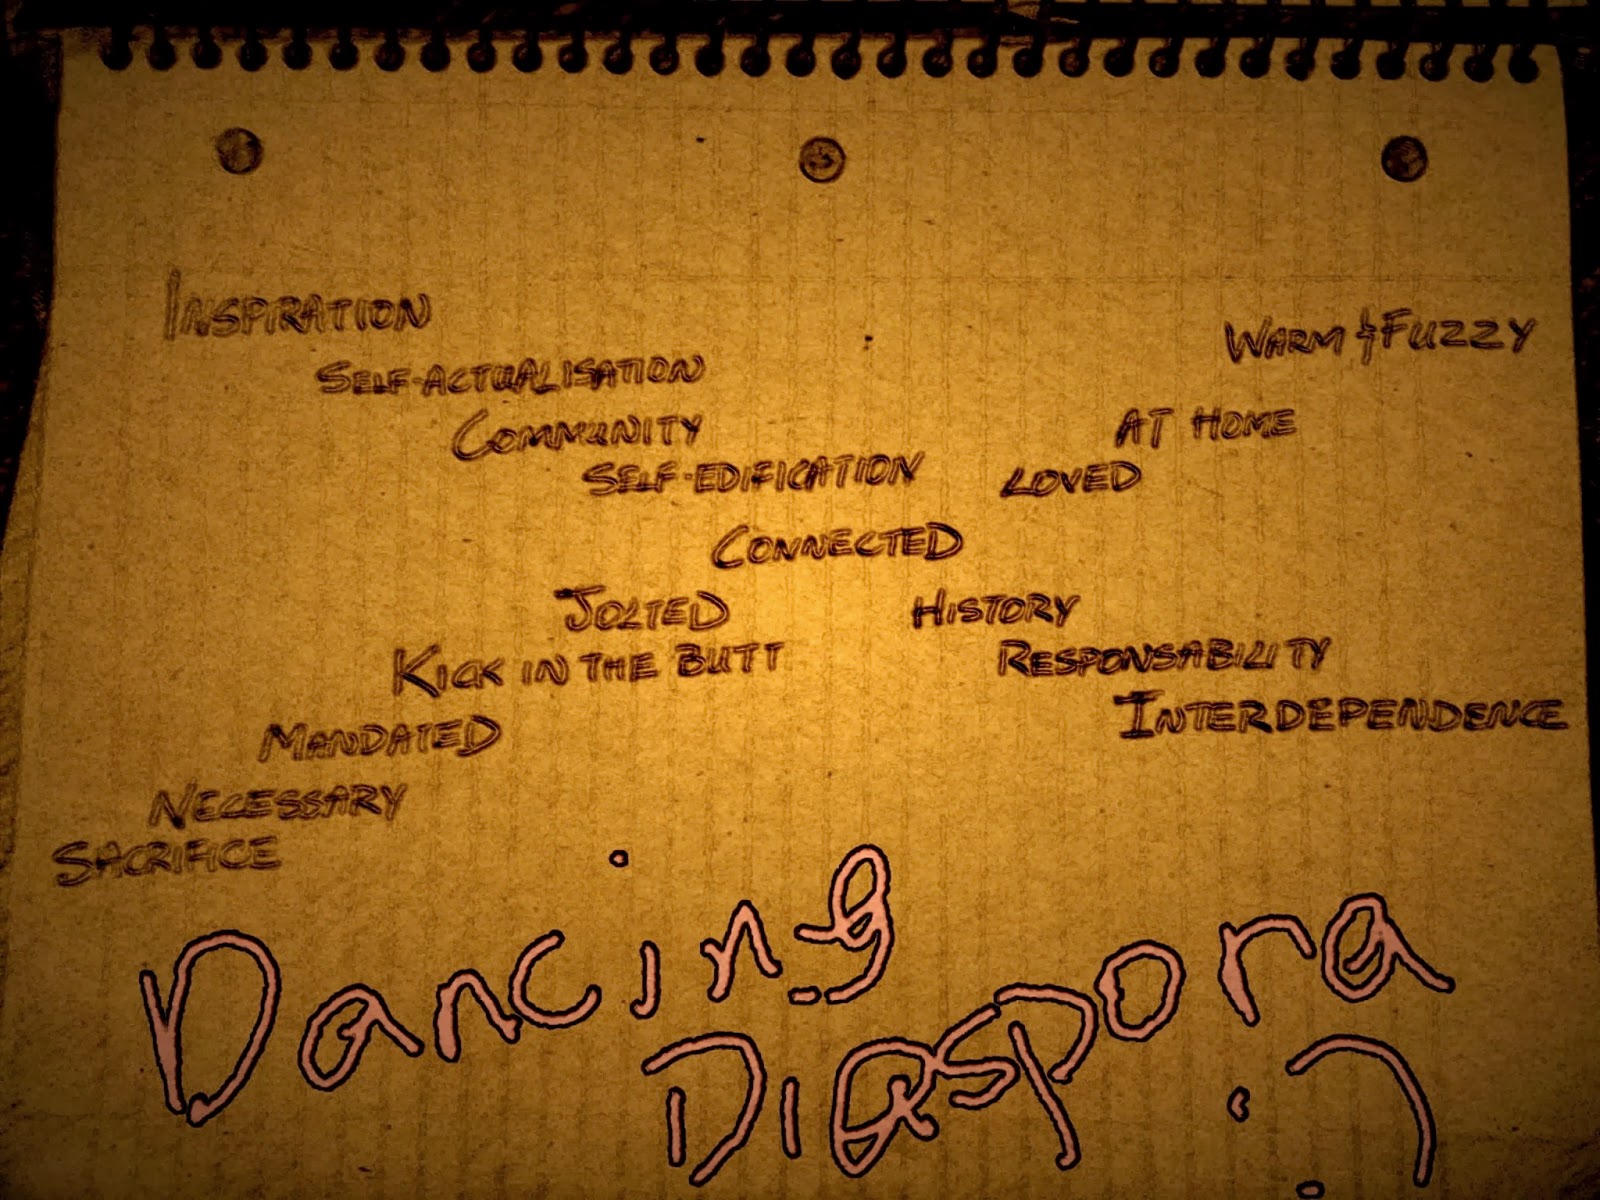 INSPIRATION
WARM & FUZZY
SELF-ACTUALISATION
COMMUNITY
AT HOME
SELF-EDIFICATION
LOVED
CONNECTED
JOLTED
HISTORY
KICK IN THE BUTT
RESPONSABILITY
INTERDEPENDENCE
MANDATED
NECESSARY
SACRIFICE
Dancing
DIaspora
:)